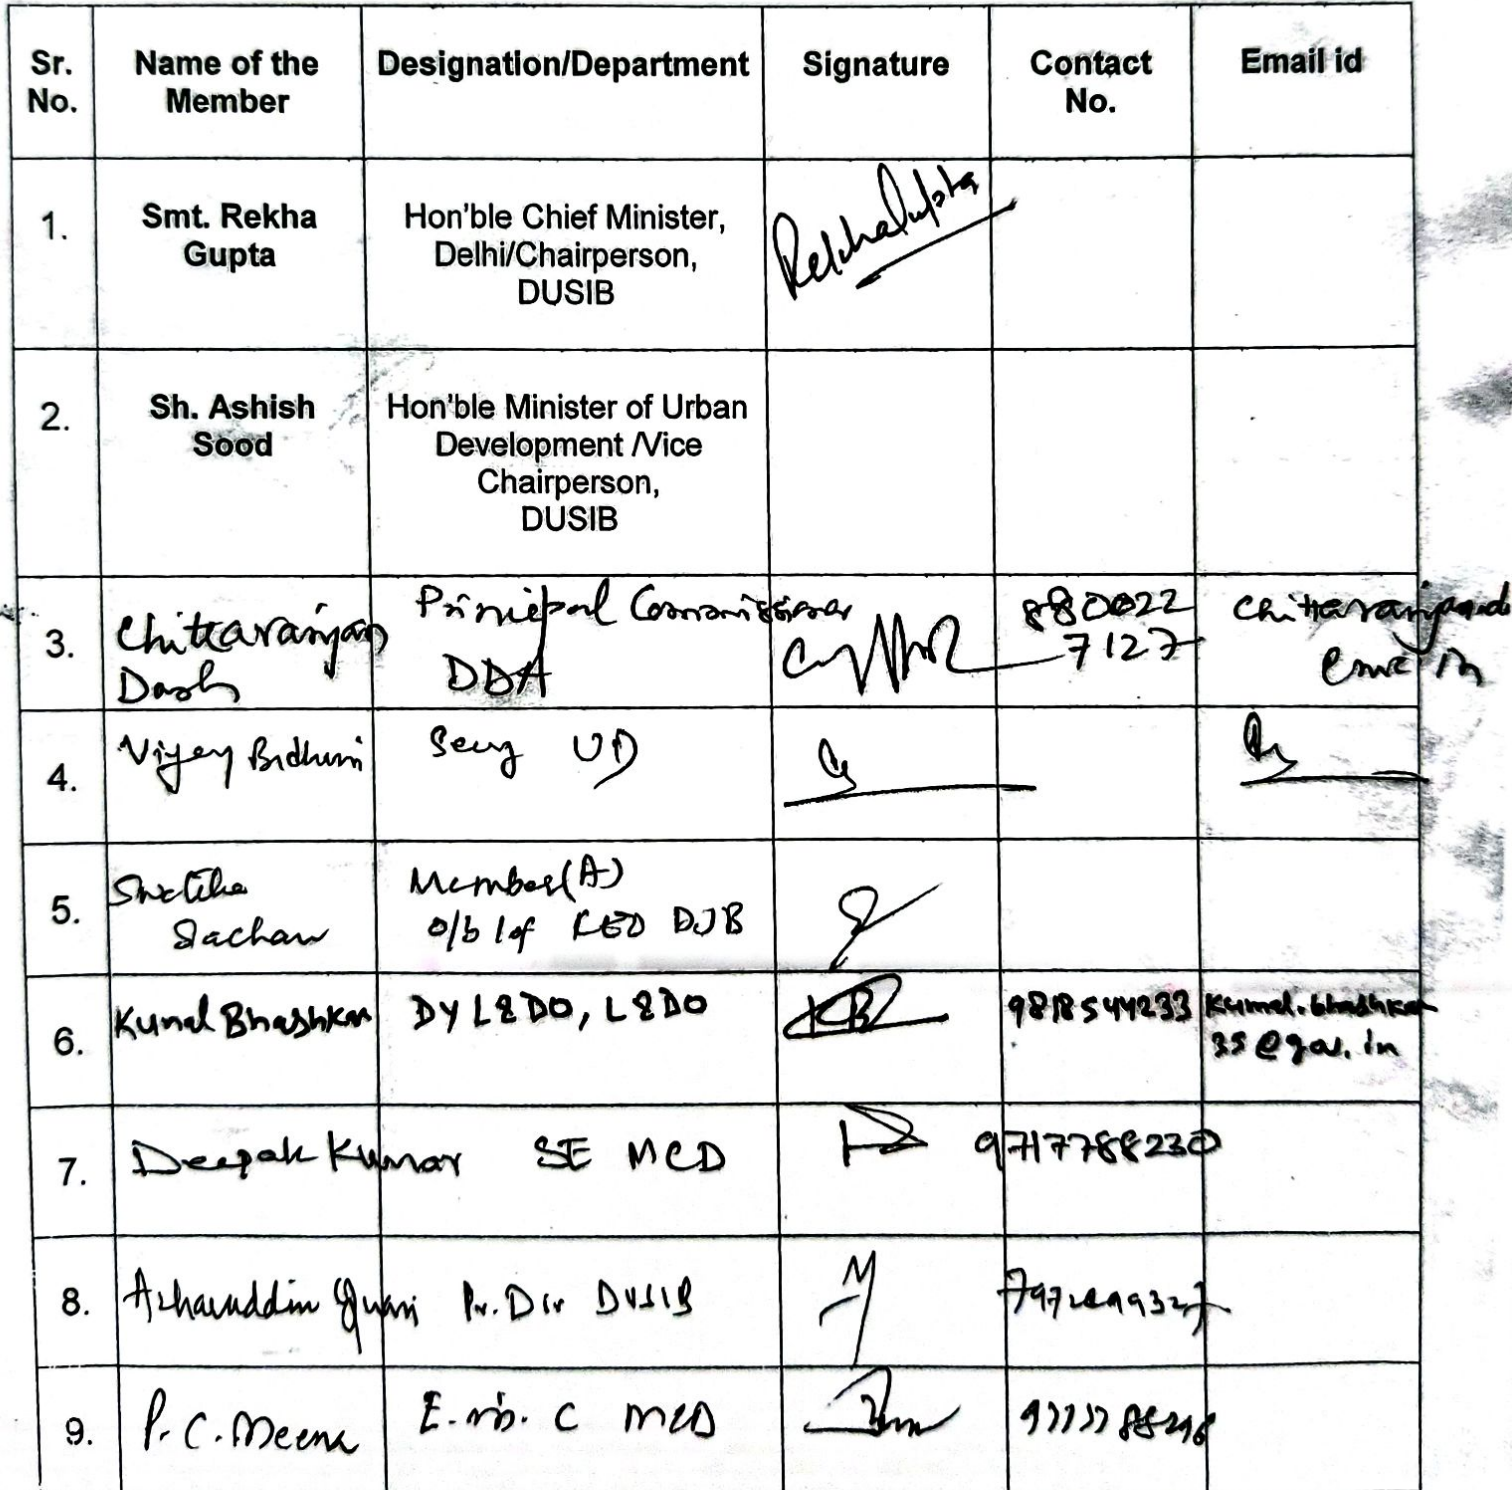 Sr. No. Name of the Member Designation/Department Signature Contact No. Email id
1. Smt. Rekha Gupta Hon'ble Chief Minister, Delhi/Chairperson, DUSIB Rekha Gupta
2. Sh. Ashish Sood Hon'ble Minister of Urban Development /Vice Chairperson, DUSIB
3. Chittaranjan Dash Principal Commissioner DDA 880022 7127
4. Vijay Bidhuri Secy UD
5. Sachan Member(A) DJB
6. Kunal Bhashkar DY L&DO, L&DO KB 9818544233 Kunal.bhashkar 35@gov.in
7. Deepak Kumar SE MCD 9717788230
8. Azharuddin Pr. Dir DUSIB
9. P.C. Meena E-in-C MCD